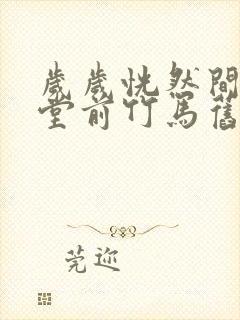 歲歲恍然間
堂前竹馬舊
莞迩